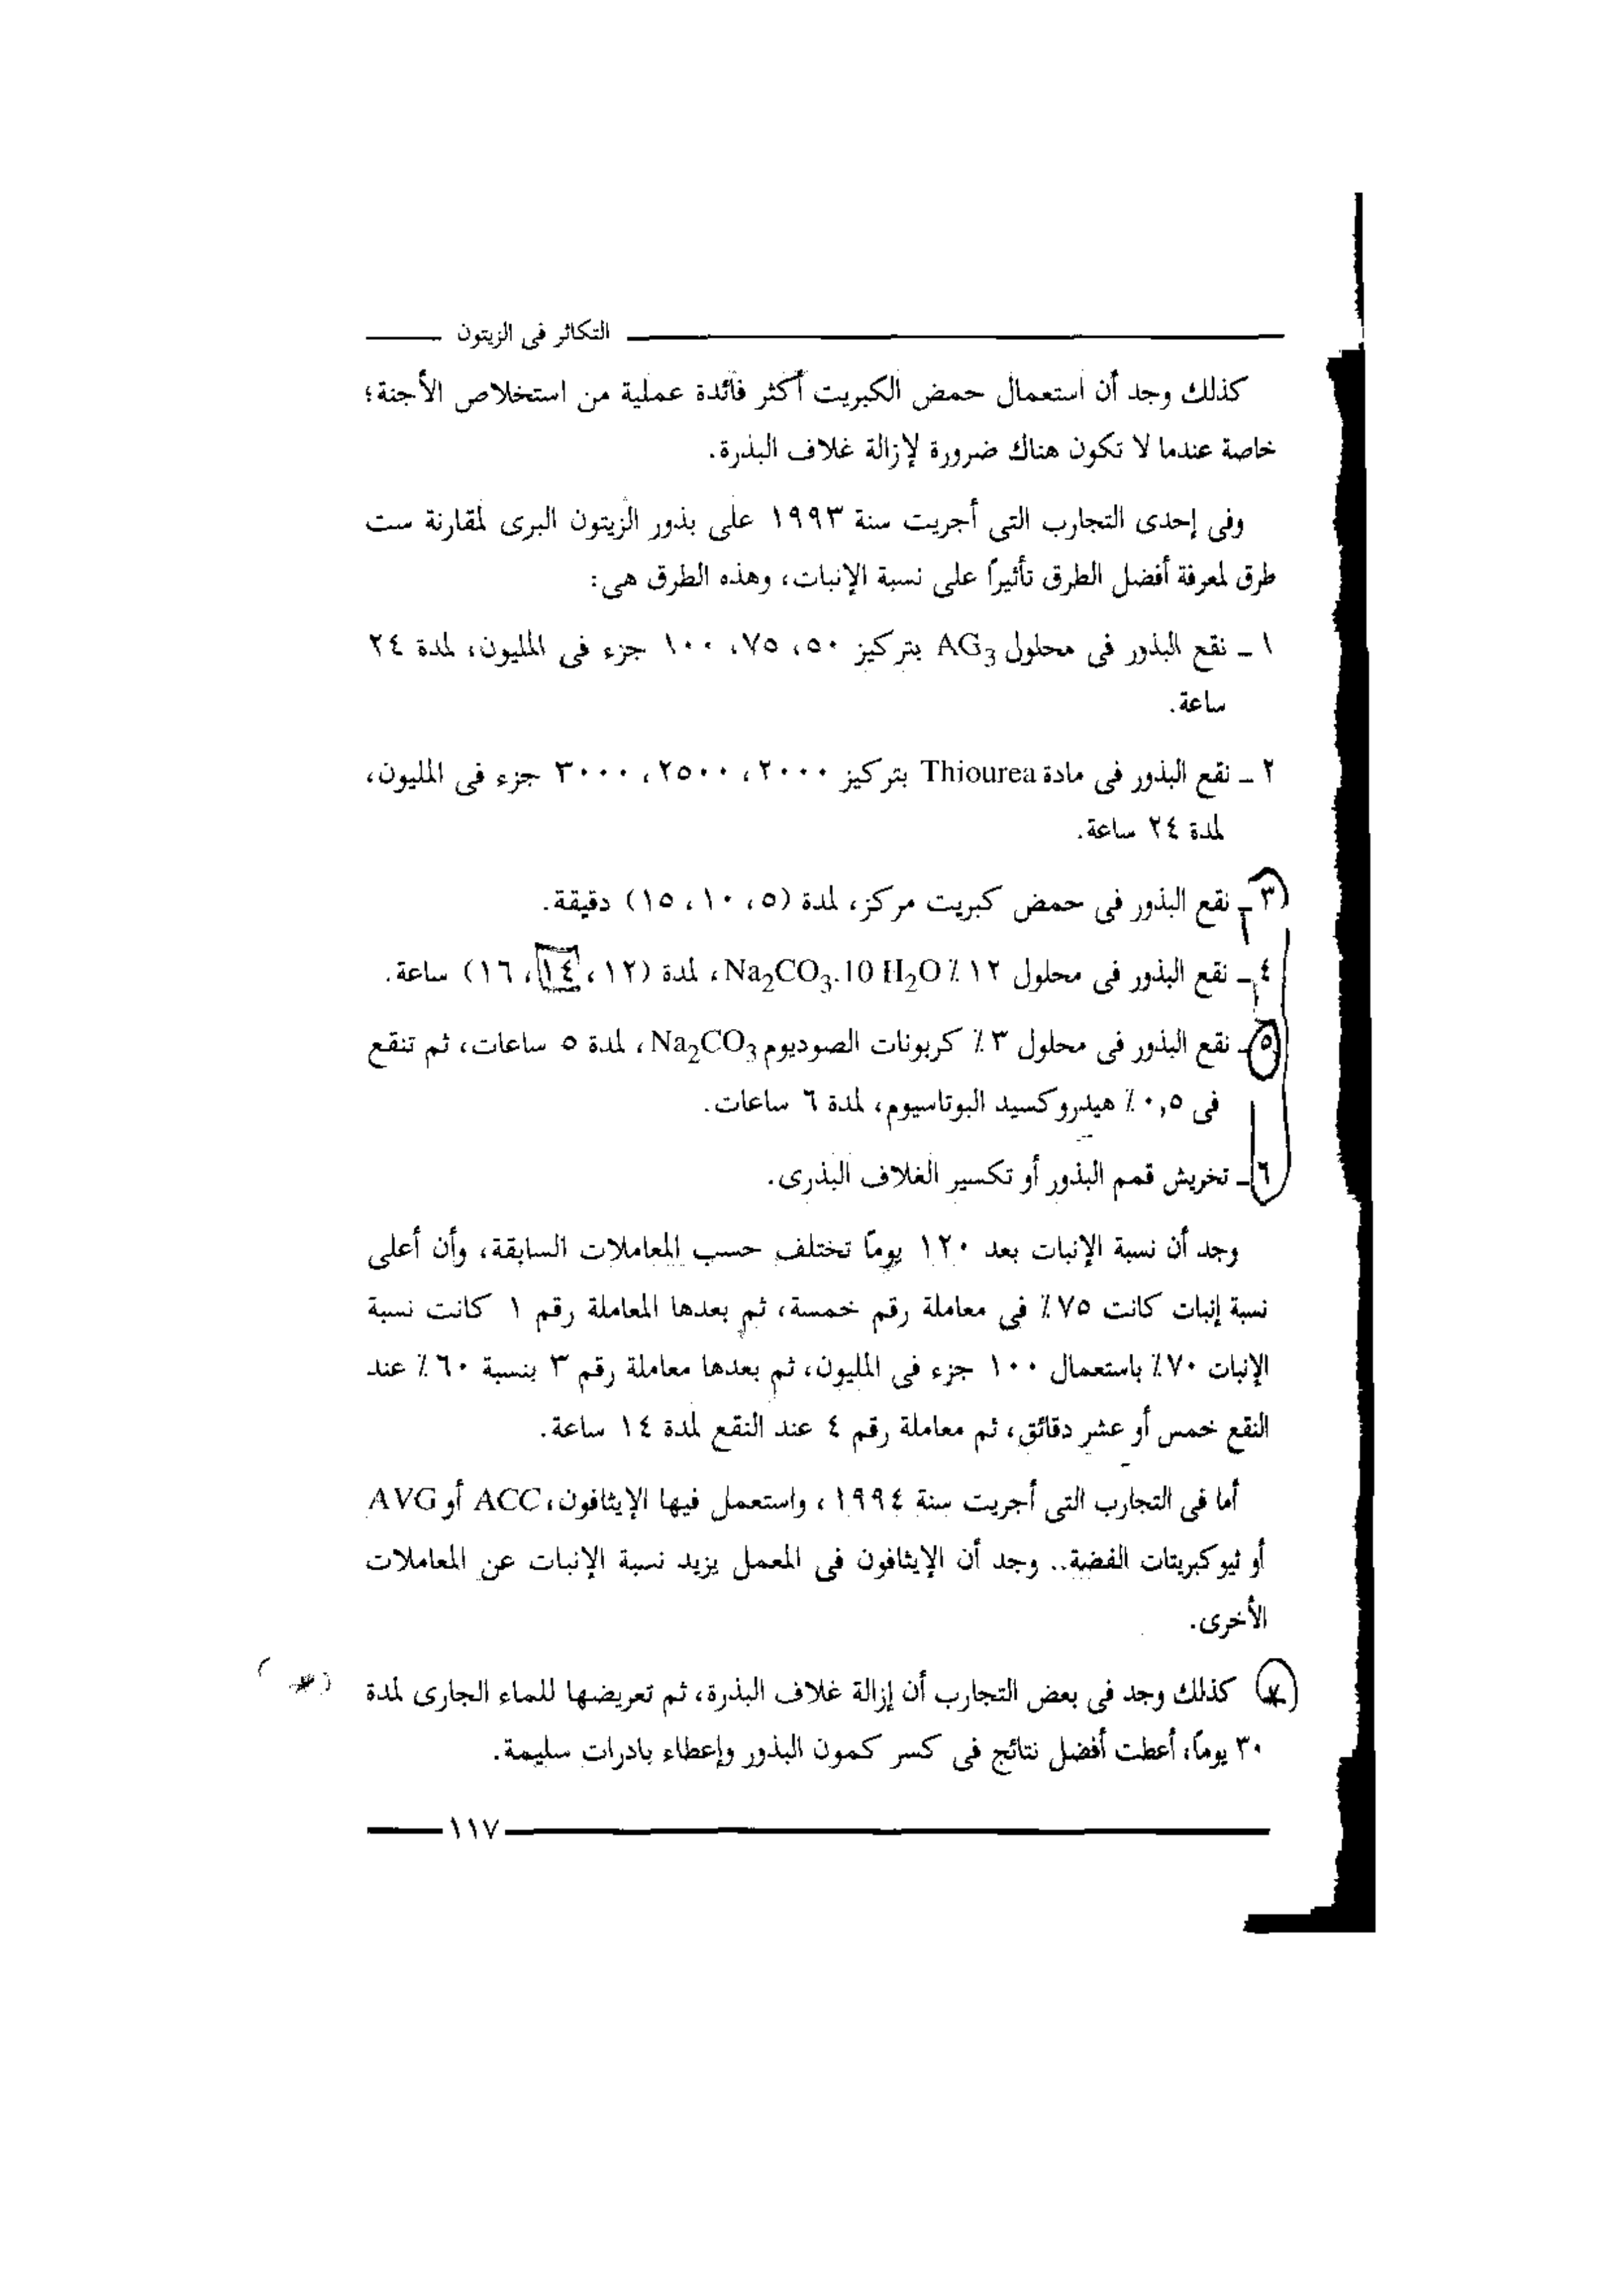 التكاثر فى الزيتون
كذلك وجد أن استعمال حمض الكبريت أكثر فائدة عملية من استخلاص الأجنة؛
خاصة عندما لا تكون هناك ضرورة لإزالة غلاف البذرة.
وفى إحدى التجارب التى أجريت سنة ١٩٩٣ على بذور الزيتون البرى لمقارنة ست
طرق لمعرفة أفضل الطرق تأثيرًا على نسبة الإنبات، وهذه الطرق هى:
١ ـ نقع البذور فى محلول AG₃ بتركيز ٥٠، ٧٥، ١٠٠ جزء فى المليون، لمدة ٢٤
ساعة.
٢ ـ نقع البذور فى مادة Thiourea بتركيز ٢٠٠٠، ٢٥٠٠، ٣٠٠٠ جزء فى المليون،
لمدة ٢٤ ساعة.
٣ ـ نقع البذور فى حمض كبريت مركز، لمدة (٥، ١٠، ١٥) دقيقة.
٤ ـ نقع البذور فى محلول ١٢ ٪ Na₂CO₃.10 H₂O، لمدة (١٢، ١٤، ١٦) ساعة.
٥ ـ نقع البذور فى محلول ٣ ٪ كربونات الصوديوم Na₂CO₃، لمدة ٥ ساعات، ثم تنقع
فى ٠,٥ ٪ هيدروكسيد البوتاسيوم، لمدة ٦ ساعات.
٦ ـ تخريش قمم البذور أو تكسير الغلاف البذرى.
وجد أن نسبة الإنبات بعد ١٢٠ يومًا تختلف حسب المعاملات السابقة، وأن أعلى
نسبة إنبات كانت ٧٥ ٪ فى معاملة رقم خمسة، ثم بعدها المعاملة رقم ١ كانت نسبة
الإنبات ٧٠٪ باستعمال ١٠٠ جزء فى المليون، ثم بعدها معاملة رقم ٣ بنسبة ٦٠ ٪ عند
النقع خمس أو عشر دقائق، ثم معاملة رقم ٤ عند النقع لمدة ١٤ ساعة.
أما فى التجارب التى أجريت سنة ١٩٩٤، واستعمل فيها الإيثافون، ACC أو AVG
أو ثيوكبريتات الفضة.. وجد أن الإيثافون فى المعمل يزيد نسبة الإنبات عن المعاملات
الأخرى.
كذلك وجد فى بعض التجارب أن إزالة غلاف البذرة، ثم تعريضها للماء الجارى لمدة
٣٠ يومًا، أعطت أفضل نتائج فى كسر كمون البذور وإعطاء بادرات سليمة.
١١٧